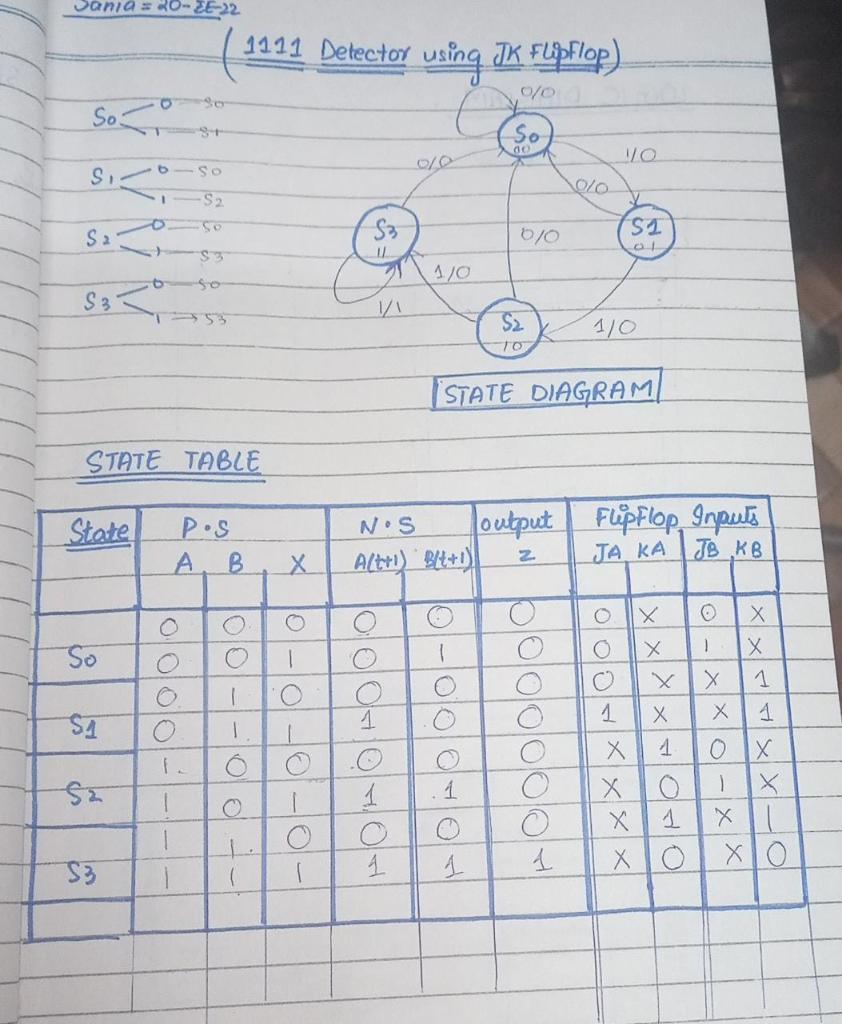 Sania = 20-EE-22
(1111 Detector using JK FlipFlop)
S0 0 — S0
1 — S1
S1 0 — S0
1 — S2
S2 0 — S0
1 — S3
S3 0 — S0
1 → S3
0/0
S0
00
0/0
1/0
0/0
S3
11
0/0
S1
01
1/0
1/1
S2
10
1/0
STATE DIAGRAM
STATE TABLE
State P.S N.S output FlipFlop Inputs
A B X A(t+1) B(t+1) z JA KA JB KB
0 0 0 0 0 0 0 X 0 X
S0 0 0 1 0 1 0 0 X 1 X
0 1 0 0 0 0 0 X X 1
S1 0 1 1 1 0 0 1 X X 1
1 0 0 0 0 0 X 1 0 X
S2 1 0 1 1 1 0 X 0 1 X
1 1 0 0 0 0 X 1 X 1
S3 1 1 1 1 1 1 X 0 X 0